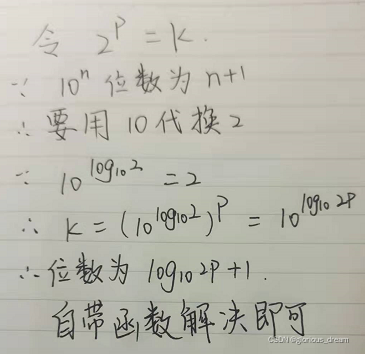 令 2^P = K.
∵ 10^n 位数为 n+1
∴ 要用 10 代换 2
∵ 10^log₁₀2 = 2
∴ K = (10^log₁₀2)^P = 10^log₁₀2P
∴ 位数为 log₁₀2P+1.
自带函数解决即可
CSDN @glorious_dream